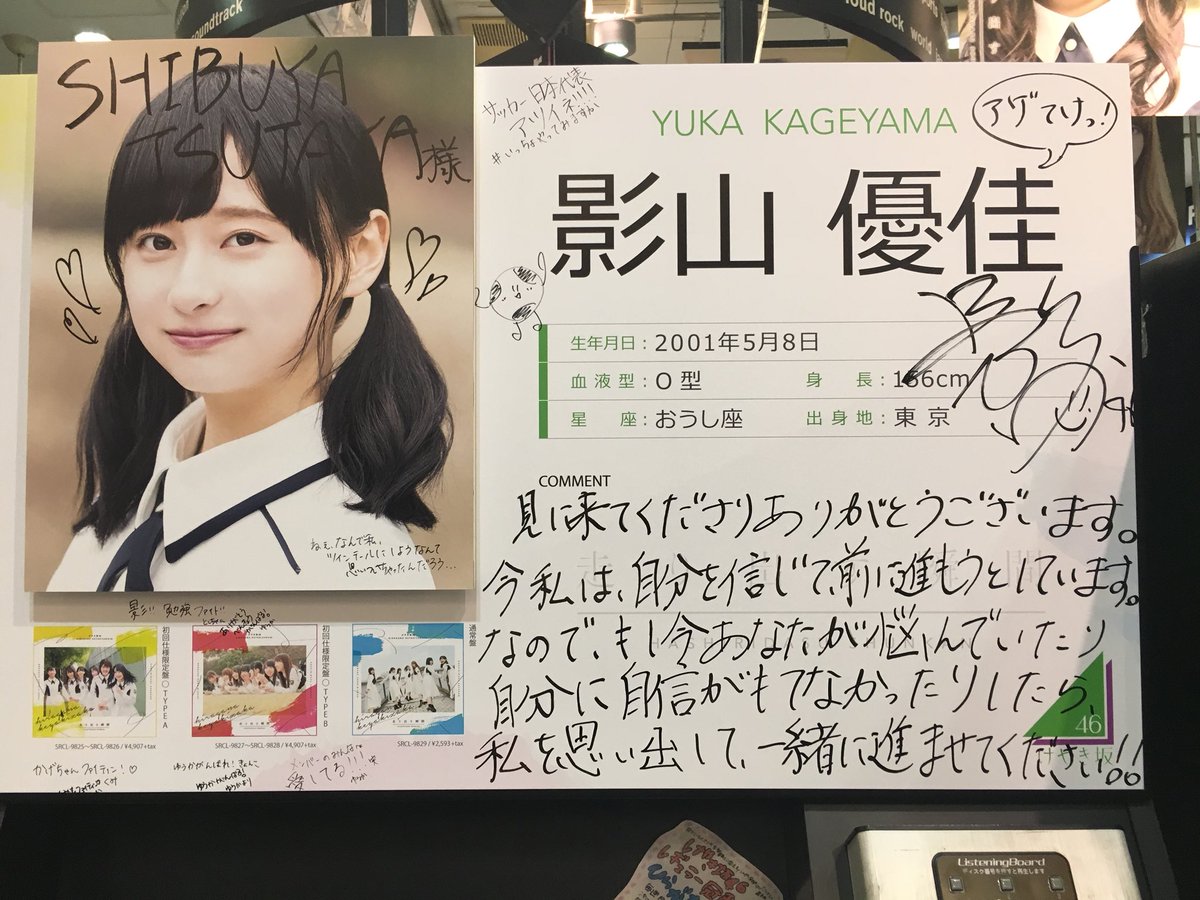 soundtrack
loud rock
world
SHIBUYA
TSUTAYA様
サッカー日本代表
アツイネ!!!!
#いっちょやってみますか
YUKA KAGEYAMA
アゲてけっ!
影山 優佳
生年月日：2001年5月8日
血液型：O型
身長：156cm
星座：おうし座
出身地：東京
COMMENT
見に来てくださりありがとうございます。
今私は、自分を信じて前に進もうとしています。
なので、もし今あなたが悩んでいたり
自分に自信がもてなかったりしたら、
私を思い出して、一緒に進ませてください!!
ねぇ、なんで私、
ツインテールにしようなんて
思いついちゃったんだろう…
影山 勉強ファイト
初回仕様限定盤 TYPE A
初回仕様限定盤 TYPE B
通常盤
SRCL-9825〜SRCL-9826 / ¥4,907+tax
SRCL-9827〜SRCL-9828 / ¥4,907+tax
SRCL-9829 / ¥2,593+tax
かげちゃんファイティン!♡
ゆうかがんばれ!
メンバーのみんな
愛してる!!!
46
けやき坂
ListeningBoard
ディスク番号を押すと再生します